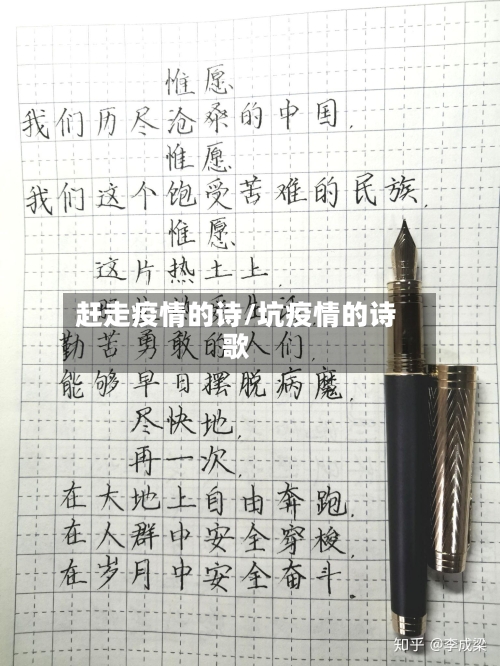 惟愿
我们历尽沧桑的中国,
惟愿
我们这个饱受苦难的民族,
惟愿
这片热土上,
赶走疫情的诗/坑疫情的诗
歌
勤苦勇敢的人们,
能够早日摆脱病魔,
尽快地,
再一次,
在大地上自由奔跑,
在人群中安全穿梭,
在岁月中安全奋斗.
知乎 @李成梁